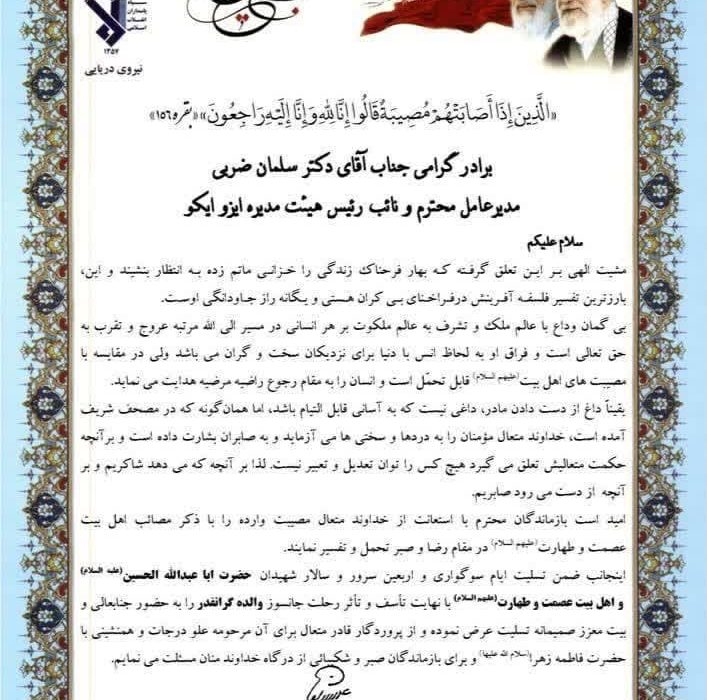 سپاه
پاسداران
انقلاب
اسلامی
۱۳۵۷
نیروی دریایی
«الَّذِينَ إِذَا أَصَابَتْهُمْ مُصِيبَةٌ قَالُوا إِنَّا لِلَّهِ وَإِنَّا إِلَيْهِ رَاجِعُونَ» «بقره ۱۵۶»
برادر گرامی جناب آقای دکتر سلمان ضربی
مدیرعامل محترم و نائب رئیس هیئت مدیره ایزو ایکو
سلام علیکم
مشیت الهی بر این تعلق گرفته که بهار فرحناک زندگی را خزانی ماتم زده به انتظار بنشیند و این،
بارزترین تفسیر فلسفه آفرینش درفراخنای بی کران هستی و یگانه راز جاودانگی اوست.
بی گمان وداع با عالم ملک و تشرف به عالم ملکوت بر هر انسانی در مسیر الی الله مرتبه عروج و تقرب به
حق تعالی است و فراق او به لحاظ انس با دنیا برای نزدیکان سخت و گران می باشد ولی در مقایسه با
مصیبت های اهل بیت(علیهم السلام) قابل تحمّل است و انسان را به مقام رجوع راضیه مرضیه هدایت می نماید.
یقیناً داغ از دست دادن مادر، داغی نیست که به آسانی قابل التیام باشد، اما همان‌گونه که در مصحف شریف
آمده است، خداوند متعال مؤمنان را به دردها و سختی ها می آزماید و به صابران بشارت داده است و برآنچه
حکمت متعالیش تعلق می گیرد هیچ کس را توان تعدیل و تعبیر نیست. لذا بر آنچه که می دهد شاکریم و بر
آنچه از دست می رود صابریم.
امید است بازماندگان محترم با استعانت از خداوند متعال مصیبت وارده را با ذکر مصائب اهل بیت
عصمت و طهارت(علیهم السلام) در مقام رضا و صبر تحمل و تفسیر نمایند.
اینجانب ضمن تسلیت ایام سوگواری و اربعین سرور و سالار شهیدان حضرت ابا عبدالله الحسین(علیه السلام)
و اهل بیت عصمت و طهارت(علیهم السلام) با نهایت تأسف و تأثر رحلت جانسوز والده گرانقدر را به حضور جنابعالی و
بیت معزز صمیمانه تسلیت عرض نموده و از پروردگار قادر متعال برای آن مرحومه علو درجات و همنشینی با
حضرت فاطمه زهرا(سلام الله علیها) و برای بازماندگان صبر و شکیبائی از درگاه خداوند منان مسئلت می نمایم.